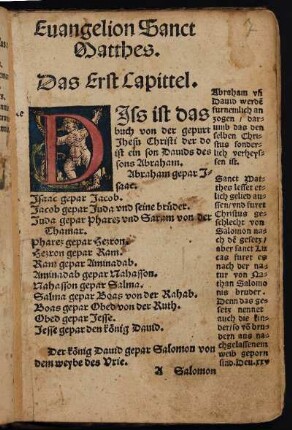 Euangelion Sanct
Matthes.
Das Erst Capittel.
DJss ist das
buch von der gepurt
Jhesu Christi der do
ist ein son Dauids des
sons Abraham.
Abraham gepar J-
saac.
Jsaac gepar Jacob.
Jacob gepar Juda vnd seine brüder.
Juda gepar Pharez vnd Saram von der
Thamar.
Pharez gepar Hezron.
Hezron gepar Ram.
Ram gepar Aminadab.
Aminadab gepar Nahasson.
Nahasson gepar Salma.
Salma gepar Boas von der Rahab.
Boas gepar Obed von der Ruth.
Obed gepar Jesse.
Jesse gepar den könig Dauid.
Der könig Dauid gepar Salomon von
dem weybe des Vrie.
A Salomon
Abraham vñ
Dauid werdē
furnemlich an
zogen / dar-
umb das den
selben Chris
tus sonder-
lich verheys-
sen ist.
Sanct Mat
theo lesset etz
lich gelied aus
sen / vnd furet
Christus ge-
schlecht von
Salomon nas
ch dē gesetz /
aber sanct Lu
cas furet es
nach der na-
tur von Na-
than Salomo
nis bruder.
Denn das ge-
setz nennet
auch die kin-
der / so vō bru-
dern aus na-
chgelassenem
weib geporn
sind. Deu. xxv